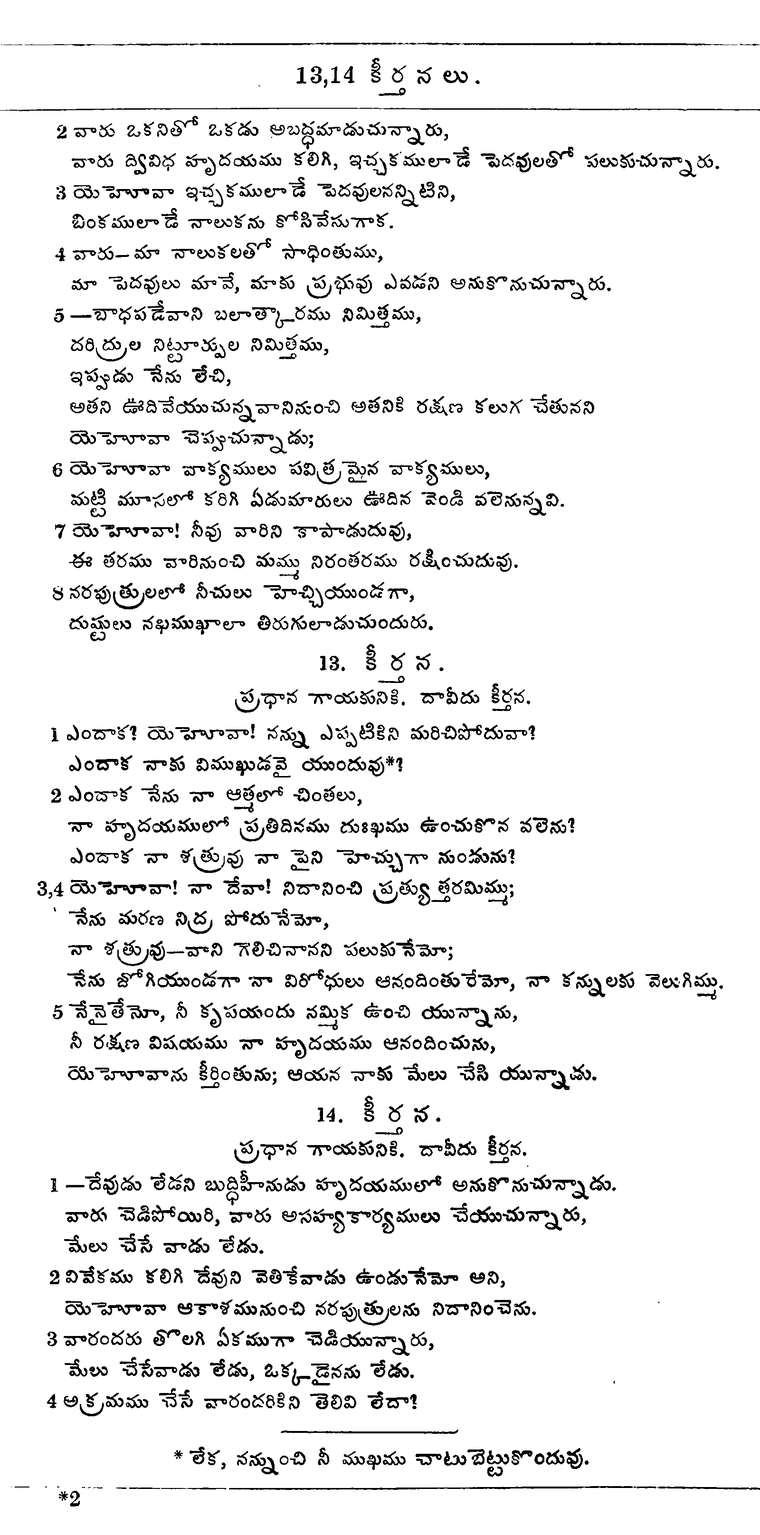 13,14 కీర్తనలు.
2 వారు ఒకనితో ఒకడు అబద్ధమాడుచున్నారు,
వారు ద్వివిధ హృదయము కలిగి, ఇచ్చకములాడే పెదవులతో పలుకుచున్నారు.
3 యెహెూవా ఇచ్చకములాడే పెదవులనన్నిటిని,
బింకములాడే నాలుకను కోసివేసుగాక.
4 వారు—మా నాలుకలతో సాధింతుము,
మా పెదవులు మావే, మాకు ప్రభువు ఎవడని అనుకొనుచున్నారు.
5 —బాధపడేవాని బలాత్కారము నిమిత్తము,
దరిద్రుల నిట్టూర్పుల నిమిత్తము,
ఇప్పుడు నేను లేచి,
అతని ఊదివేయుచున్నవానినుంచి అతనికి రక్షణ కలుగ చేతునని
యెహెూవా చెప్పుచున్నాడు;
6 యెహెూవా వాక్యములు పవిత్రమైన వాక్యములు,
మట్టి మూసలో కరిగి ఏడుమారులు ఊదిన వెండి వలెనున్నవి.
7 యెహెూవా! నీవు వారిని కాపాడుదువు,
ఈ తరము వారినుంచి మమ్ము నిరంతరము రక్షించుదువు.
8 నరపుత్రులలో నీచులు హెచ్చియుండగా,
దుష్టులు నఖముఖాలా తిరుగులాడుచుందురు.
13. కీర్తన.
ప్రధాన గాయకునికి. దావీదు కీర్తన.
1 ఎందాక? యెహెూవా! నన్ను ఎప్పటికిని మరిచిపోదువా?
ఎందాక నాకు విముఖుడవై యుందువు*?
2 ఎందాక నేను నా ఆత్మలో చింతలు,
నా హృదయములో ప్రతిదినము దుఃఖము ఉంచుకొన వలెను?
ఎందాక నా శత్రువు నా పైని హెచ్చుగా నుండును?
3,4 యెహెూవా! నా దేవా! నిదానించి ప్రత్యుత్తరమిమ్ము;
నేను మరణ నిద్ర పోదునేమో,
నా శత్రువు—వాని గెలిచినానని పలుకునేమో;
నేను జోగియుండగా నా విరోధులు ఆనందింతురేమో, నా కన్నులకు వెలుగిమ్ము.
5 నేనైతేనో, నీ కృపయందు నమ్మిక ఉంచి యున్నాను,
నీ రక్షణ విషయము నా హృదయము ఆనందించును,
యెహెూవాను కీర్తింతును; ఆయన నాకు మేలు చేసి యున్నాడు.
14. కీర్తన.
ప్రధాన గాయకునికి. దావీదు కీర్తన.
1 —దేవుడు లేడని బుద్ధిహీనుడు హృదయములో అనుకొనుచున్నాడు.
వారు చెడిపోయిరి, వారు అసహ్యకార్యములు చేయుచున్నారు,
మేలు చేసే వాడు లేడు.
2 వివేకము కలిగి దేవుని వెతికేవాడు ఉండునేమో అని,
యెహెూవా ఆకాశమునుంచి నరపుత్రులను నిదానించెను.
3 వారందరు తొలగి ఏకముగా చెడియున్నారు,
మేలు చేసేవాడు లేడు, ఒక్కడైనను లేడు.
4 అక్రమము చేసే వారందరికిని తెలివి లేదా?
* లేక, నన్నుంచి నీ ముఖము చాటుబెట్టుకొందువు.
*2